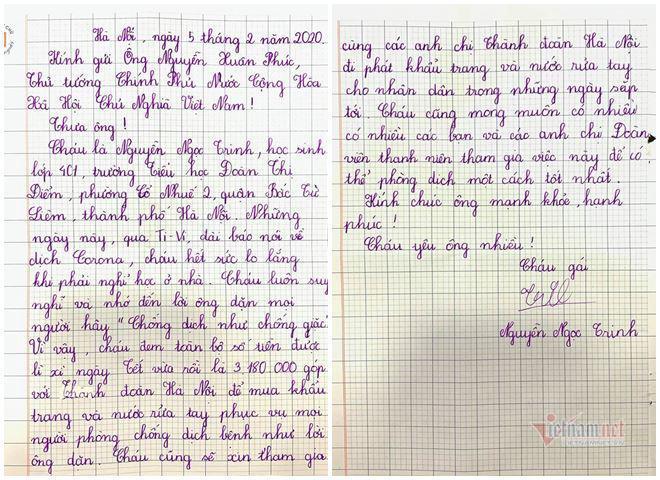 Hà Nội, ngày 5 tháng 2 năm 2020.
Kính gửi Ông Nguyễn Xuân Phúc,
Thủ tướng Chính Phủ Nước Cộng Hòa
Xã Hội Chủ Nghĩa Việt Nam!
Thưa ông!
Cháu là Nguyễn Ngọc Trinh, học sinh
lớp 4C1, trường Tiểu học Đoàn Thị
Điểm, phường Cổ Nhuế 2, quận Bắc Từ
Liêm, thành phố Hà Nội. Những
ngày này, qua Ti-Vi, đài báo nói về
dịch Corona, cháu hết sức lo lắng
khi phải nghỉ học ở nhà. Cháu luôn suy
nghĩ và nhớ đến lời ông dặn mọi
người hãy "Chống dịch như chống giặc"
Vì vậy, cháu đem toàn bộ số tiền được
lì xì ngày Tết vừa rồi là 3 180.000 góp
với Thành đoàn Hà Nội để mua khẩu
trang và nước rửa tay phục vụ mọi
người phòng chống dịch bệnh như lời
ông dặn. Cháu cũng sẽ xin tham gia
cùng các anh chị Thành đoàn Hà Nội
đi phát khẩu trang và nước rửa tay
cho nhân dân trong những ngày sắp
tới. Cháu cũng mong muốn có nhiều
có nhiều các bạn và các anh chị Đoàn
viên thanh niên tham gia việc này để có
thể phòng dịch một cách tốt nhất.
Kính chúc ông mạnh khỏe, hạnh
phúc!
Cháu yêu ông nhiều!
Cháu gái
Nguyễn Ngọc Trinh
Vietnam.net
VIETNAMNET.VN